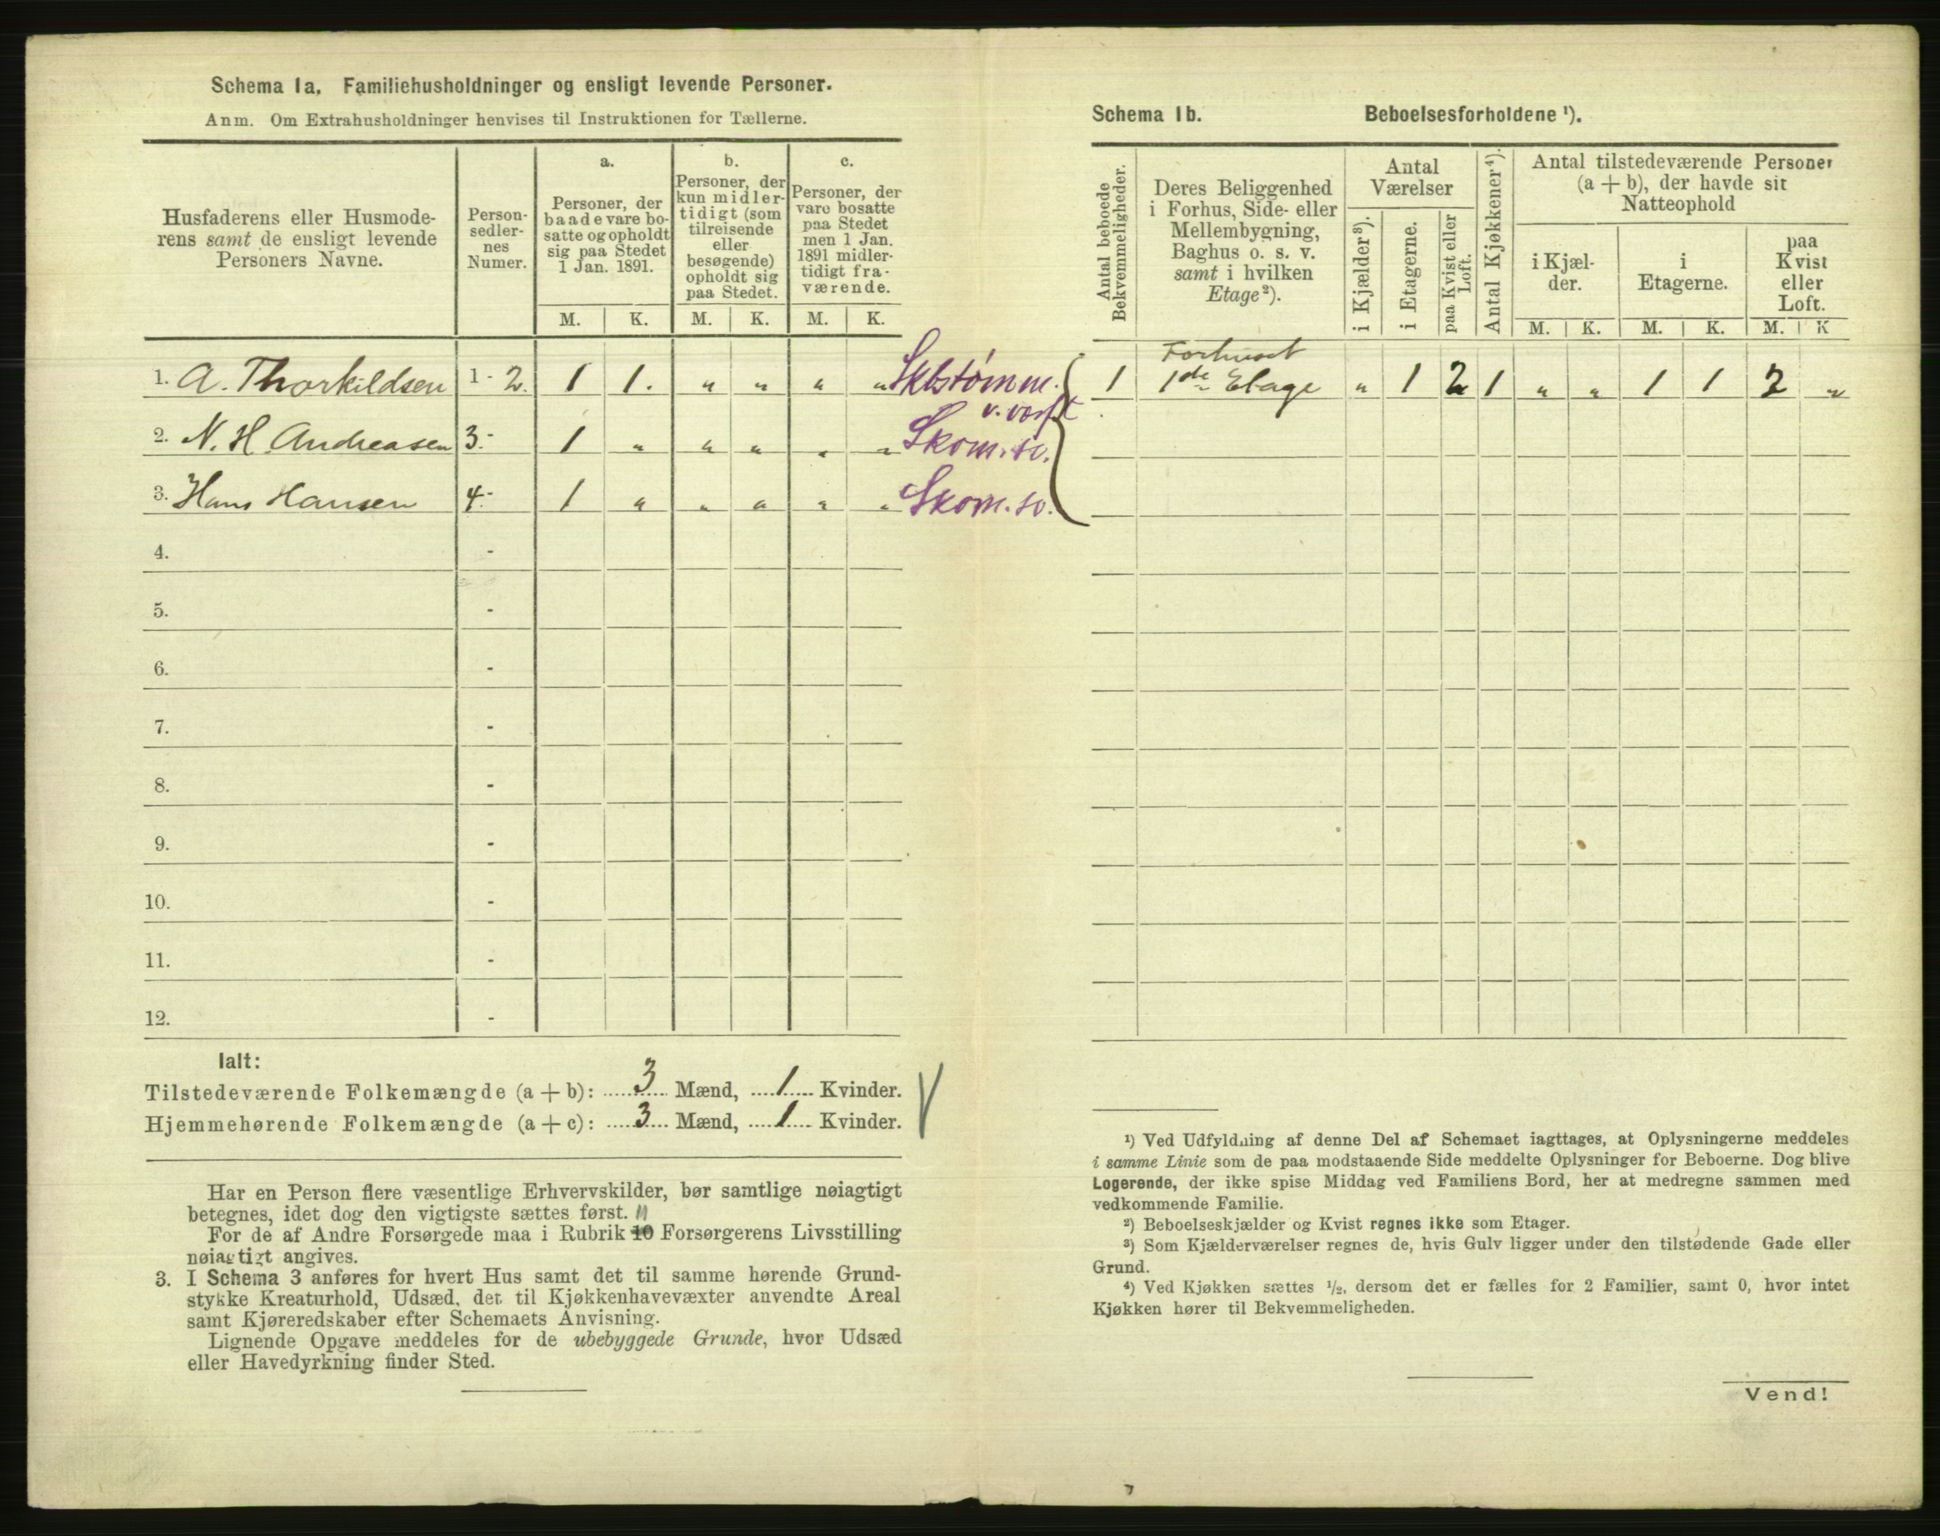 Schema 1a. Familiehusholdninger og ensligt levende Personer.
Anm. Om Extrahusholdninger henvises til Instruktionen for Tællerne.
Husfaderens eller Husmode-
rens samt de ensligt levende
Personers Navne.
Person-
sedler-
nes
Numer.
a.
Personer, der
baade vare bo-
satte og opholdt
sig paa Stedet
1 Jan. 1891.
b.
Personer, der
kun midler-
tidigt (som
tilreisende
eller
besøgende)
opholdt sig
paa Stedet.
c.
Personer, der
vare bosatte
paa Stedet
men 1 Jan.
1891 midler-
tidigt fra-
værende.
M. K. M. K. M. K.
1. A. Thorkildsen 1 - 2. 1 1. " " " " Sklstømm.
v. varft
2. N. H Andreasen 3 - 1 " " " " " Skom.sv.
3. Hans Hansen 4 - 1 " " " " " Skom.sv.
4. -
5. -
6. -
7. -
8. -
9. -
10. -
11. -
12. -
Ialt:
Tilstedeværende Folkemængde (a + b): 3 Mænd, 1 Kvinder.
Hjemmehørende Folkemængde (a + c): 3 Mænd, 1 Kvinder.
Har en Person flere væsentlige Erhvervskilder, bør samtlige nøiagtigt
betegnes, idet dog den vigtigste sættes først. 11
For de af Andre Forsørgede maa i Rubrik 10 Forsørgerens Livsstilling
nøiagtigt angives.
3. I Schema 3 anføres for hvert Hus samt det til samme hørende Grund-
stykke Kreaturhold, Udsæd, det til Kjøkkenhavevæxter anvendte Areal
samt Kjøreredskaber efter Schemaets Anvisning.
Lignende Opgave meddeles for de ubebyggede Grunde, hvor Udsæd
eller Havedyrkning finder Sted.
Schema 1b. Beboelsesforholdene ¹).
Antal beboede
Bekvemmeligheder.
Deres Beliggenhed
i Forhus, Side- eller
Mellembygning,
Baghus o. s. v.
samt i hvilken
Etage ²).
Antal
Værelser
i Kjælder ³).
i Etagerne.
paa Kvist eller
Loft.
Antal Kjøkkener ⁴).
Antal tilstedeværende Personer
(a + b), der havde sit
Natteophold
i Kjæl-
der.
i
Etagerne.
paa
Kvist
eller
Loft.
M. K. M. K. M. K
Forhuset
1 1de Etage " 1 2 1 " " 1 1 2 "
¹) Ved Udfyldning af denne Del af Schemaet iagttages, at Oplysningerne meddeles
i samme Linie som de paa modstaaende Side meddelte Oplysninger for Beboerne. Dog blive
Logerende, der ikke spise Middag ved Familiens Bord, her at medregne sammen med
vedkommende Familie.
²) Beboelseskjælder og Kvist regnes ikke som Etager.
³) Som Kjælderværelser regnes de, hvis Gulv ligger under den tilstødende Gade eller
Grund.
⁴) Ved Kjøkken sættes ½, dersom det er fælles for 2 Familier, samt 0, hvor intet
Kjøkken hører til Bekvemmeligheden.
Vend!